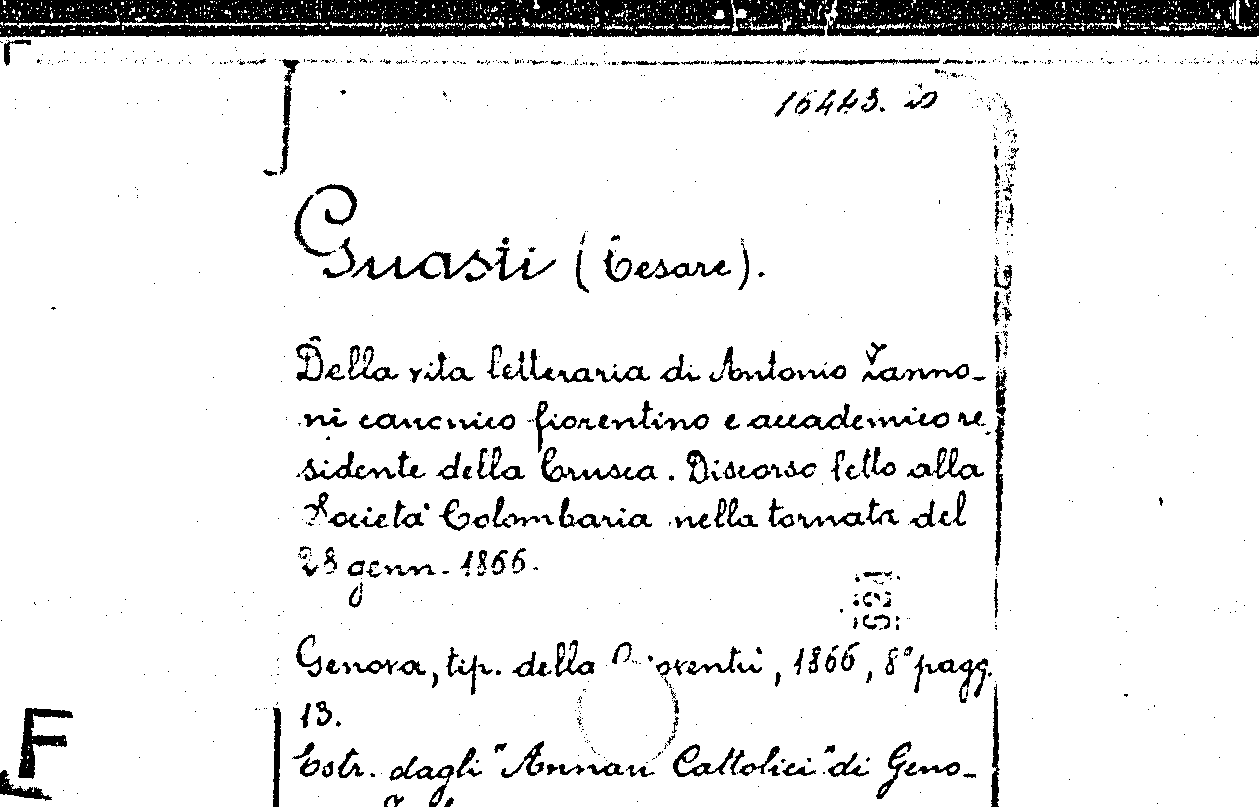 16443.
Guasti (Cesare).
Della vita letteraria di Antonio Zanno-
ni canonico fiorentino e accademico re
sidente della Crusca. Discorso letto alla
Società Colombaria nella tornata del
28 genn. 1866.
Genova, tip. della Gioventù, 1866, 8° pagg.
13.
Estr. dagli "Annali Cattolici" di Geno-
F